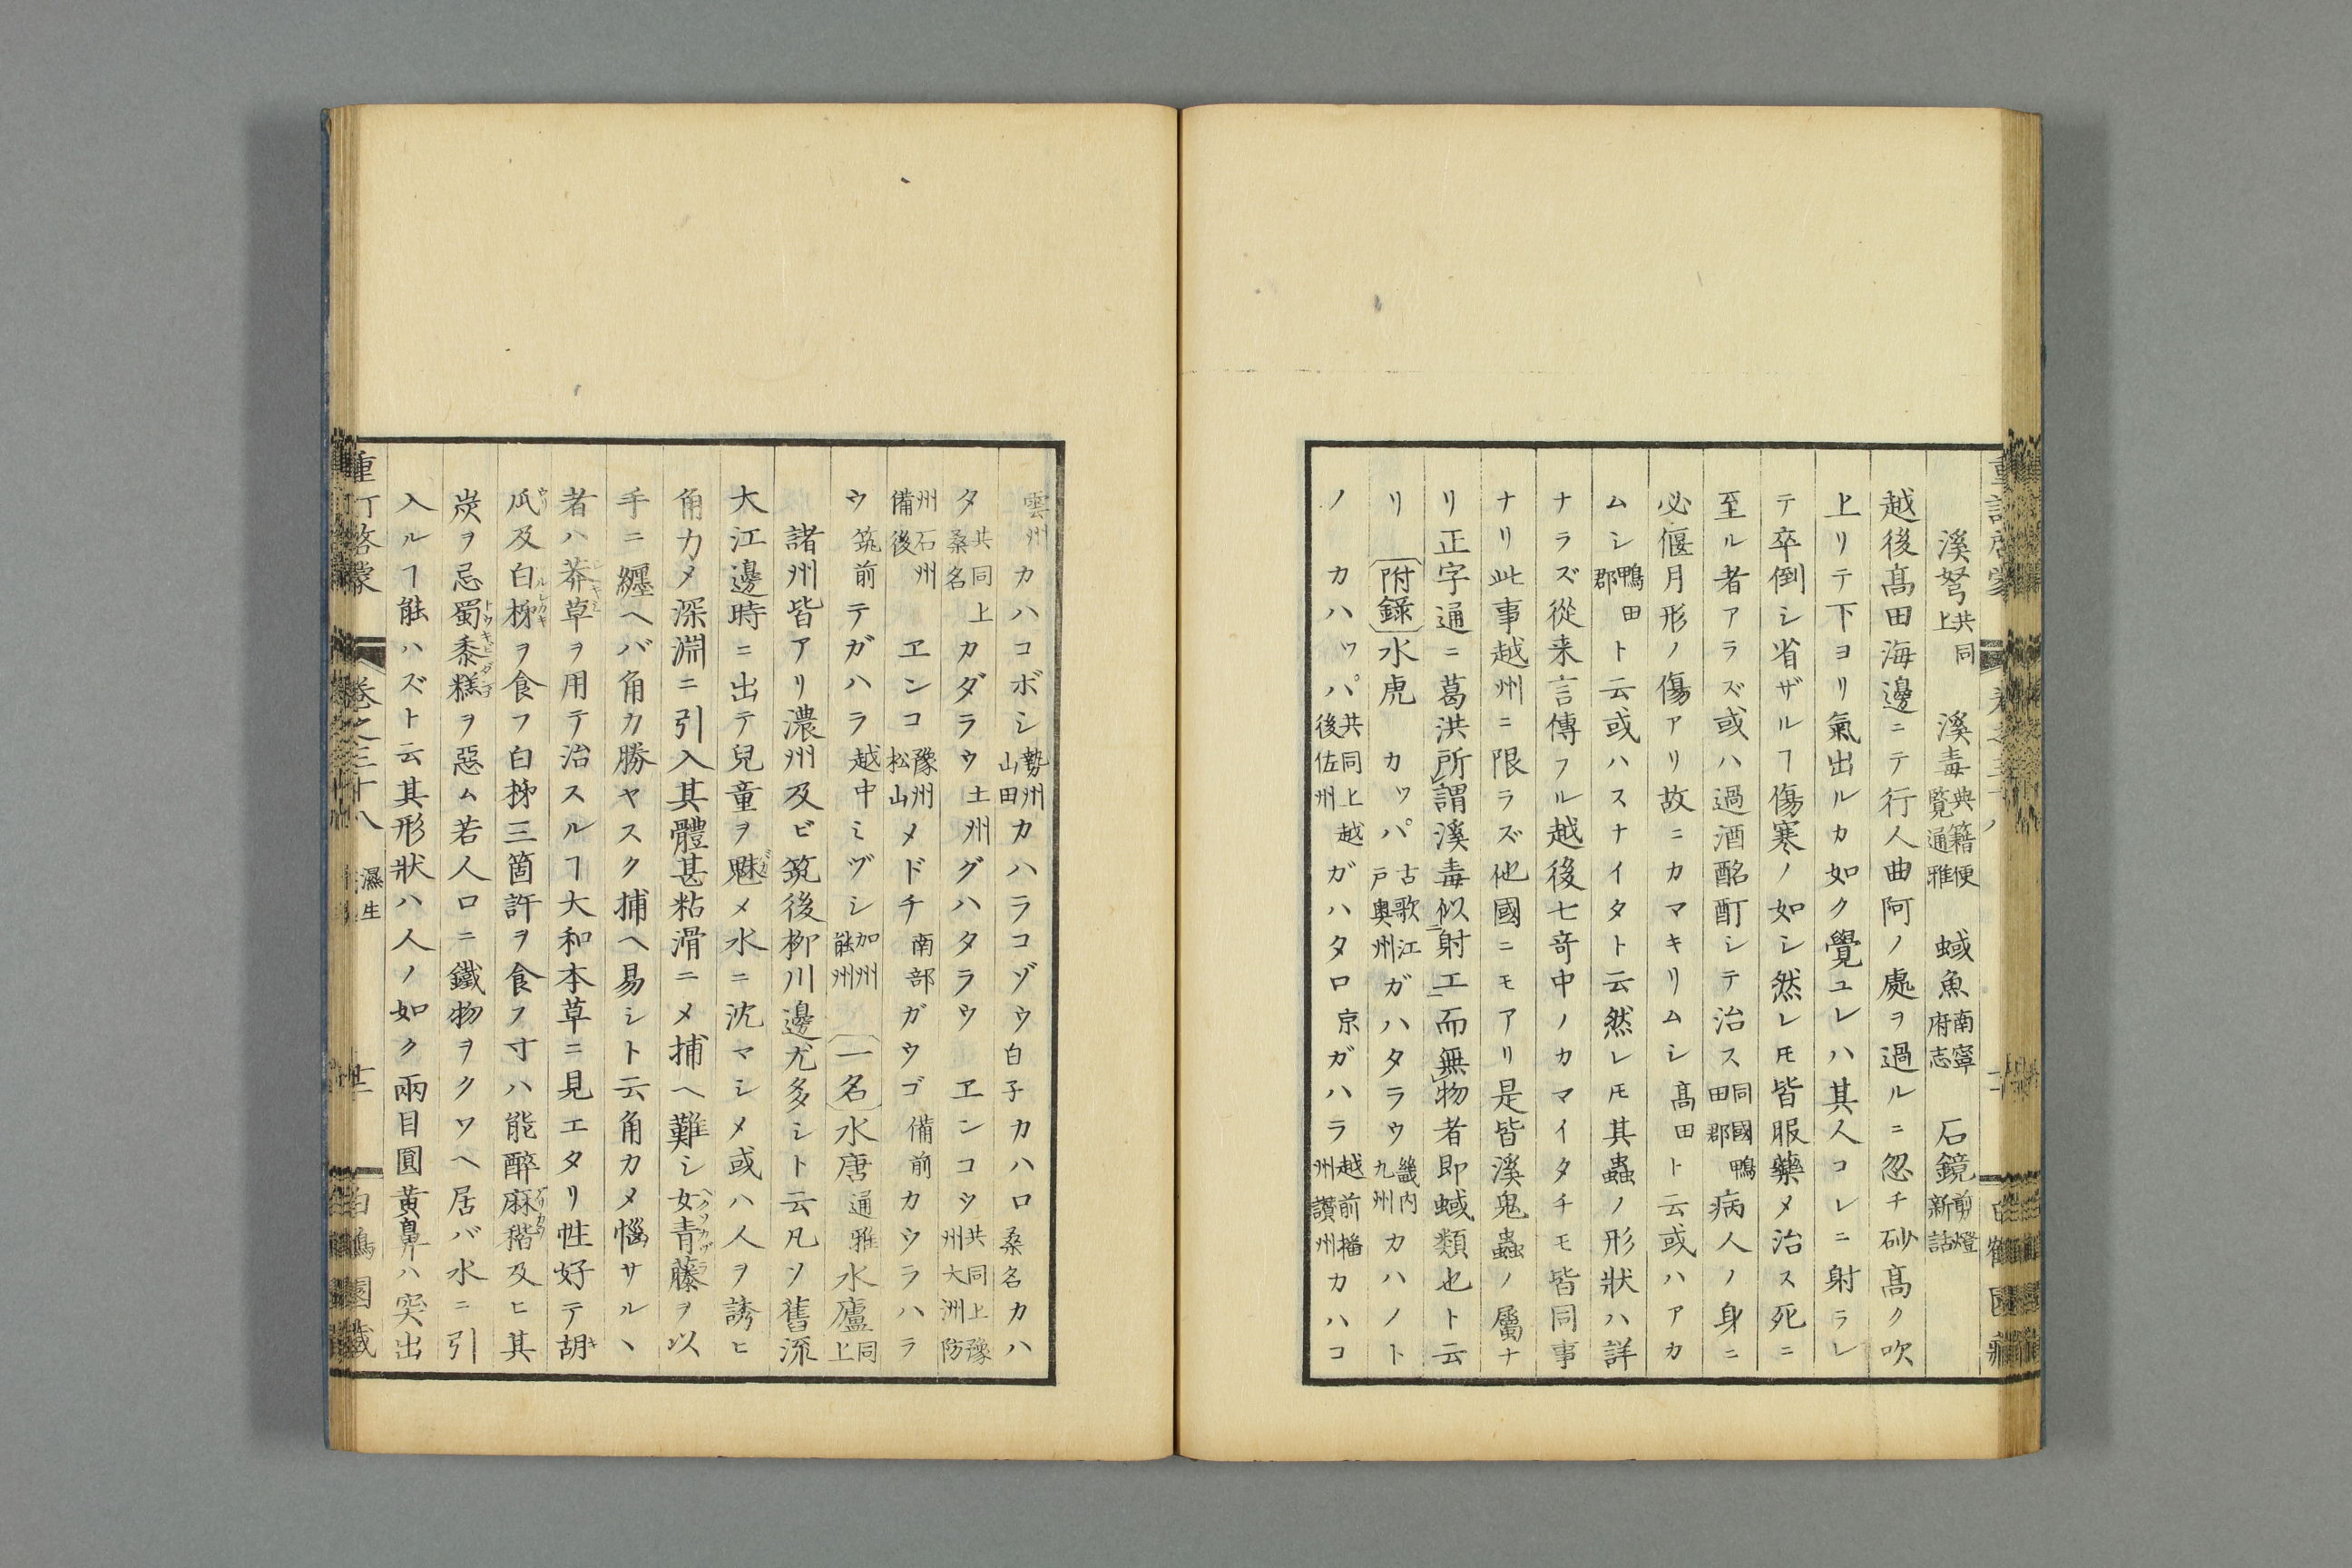 溪弩共同上 溪毒典籍便覽通雅 蜮魚南寧府志 石鏡剪燈新話
越後髙田海邊ニテ行人曲阿ノ處ヲ過ルニ忽チ砂髙ク吹
上リテ下ヨリ氣出ルカ如ク覺ユレハ其人コレニ射ラレ
テ卒倒シ省ザルヿ傷寒ノ如シ然レ𪜈皆服藥メ治ス死ニ
至ル者アラズ或ハ過酒酩酊シテ治ス同國鴨田郡病人ノ身ニ
必偃月形ノ傷アリ故ニカマキリムシ髙田ト云或ハアカ
ムシ鴨田郡ト云或ハスナイタト云然レ𪜈其蟲ノ形狀ハ詳
ナラズ從来言傳フル越後七竒中ノカマイタチモ皆同事
ナリ此事越州ニ限ラズ他國ニモアリ是皆溪鬼蟲ノ屬ナ
リ正字通ニ葛洪所謂溪毒似射工而無物者即蜮類也ト云
リ 附錄水虎 カッパ古歌江戸奥州ガハタラウ畿内九州カハノト
ノ カハッパ共同上越後佐州ガハタロ京ガハラ越前播州讃州カハコ
雲州カハコボシ勢州山田カハラコゾウ白子カハロ桑名カハ
タ共同上桑名カダラウ土州グハタラウ ヱンコウ共同上豫州大洲防
州石州備後 ヱンコ豫州松山メドチ南部ガウゴ備前カウラハラ
ウ筑前テガハラ越中ミヅシ加州能州 一名水唐通雅水廬同上
諸州皆アリ濃州及ビ筑後柳川邊尤多シト云凡ソ舊流
大江邊時ニ出テ兒童ヲ魅メ水ニ沈マシメ或ハ人ヲ誘ヒ
角力メ深淵ニ引入其體甚粘滑ニメ捕ヘ難シ女青藤ヲ以
手ニ纒ヘバ角力勝ヤスク捕ヘ易シト云角力メ惱サルヽ
者ハ莽草ヲ用テ治スルヿ大和本草ニ見エタリ性好テ胡
瓜及白柹ヲ食フ白柹三箇許ヲ食フ寸ハ能醉麻稭及ヒ其
炭ヲ忌蜀黍糕ヲ惡ム若人口ニ鐵物ヲクワヘ居バ水ニ引
入ルヿ能ハズト云其形狀ハ人ノ如ク兩目圓黃鼻ハ突出
重訂啓蒙 卷之三十八 濕生